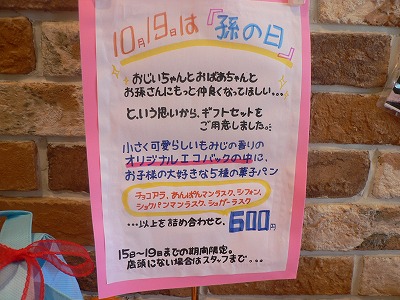 10月19日は『孫の日』
おじいちゃんとおばあちゃんと
お孫さんにもっと仲良くなってほしい。。。
と、いう思いから、ギフトセットを
ご用意しました。
小さく可愛らしいもみじの香りの
オリジナルエコバックの中に、
お子様の大好きな5種の菓子パン
チョコアラ、あんぱんマンラスク、シフォン、
ショクパンマンラスク、シュガーラスク
…以上を詰め合わせて、600円
15日〜19日までの期間限定。
店頭にない場合はスタッフまで。。。